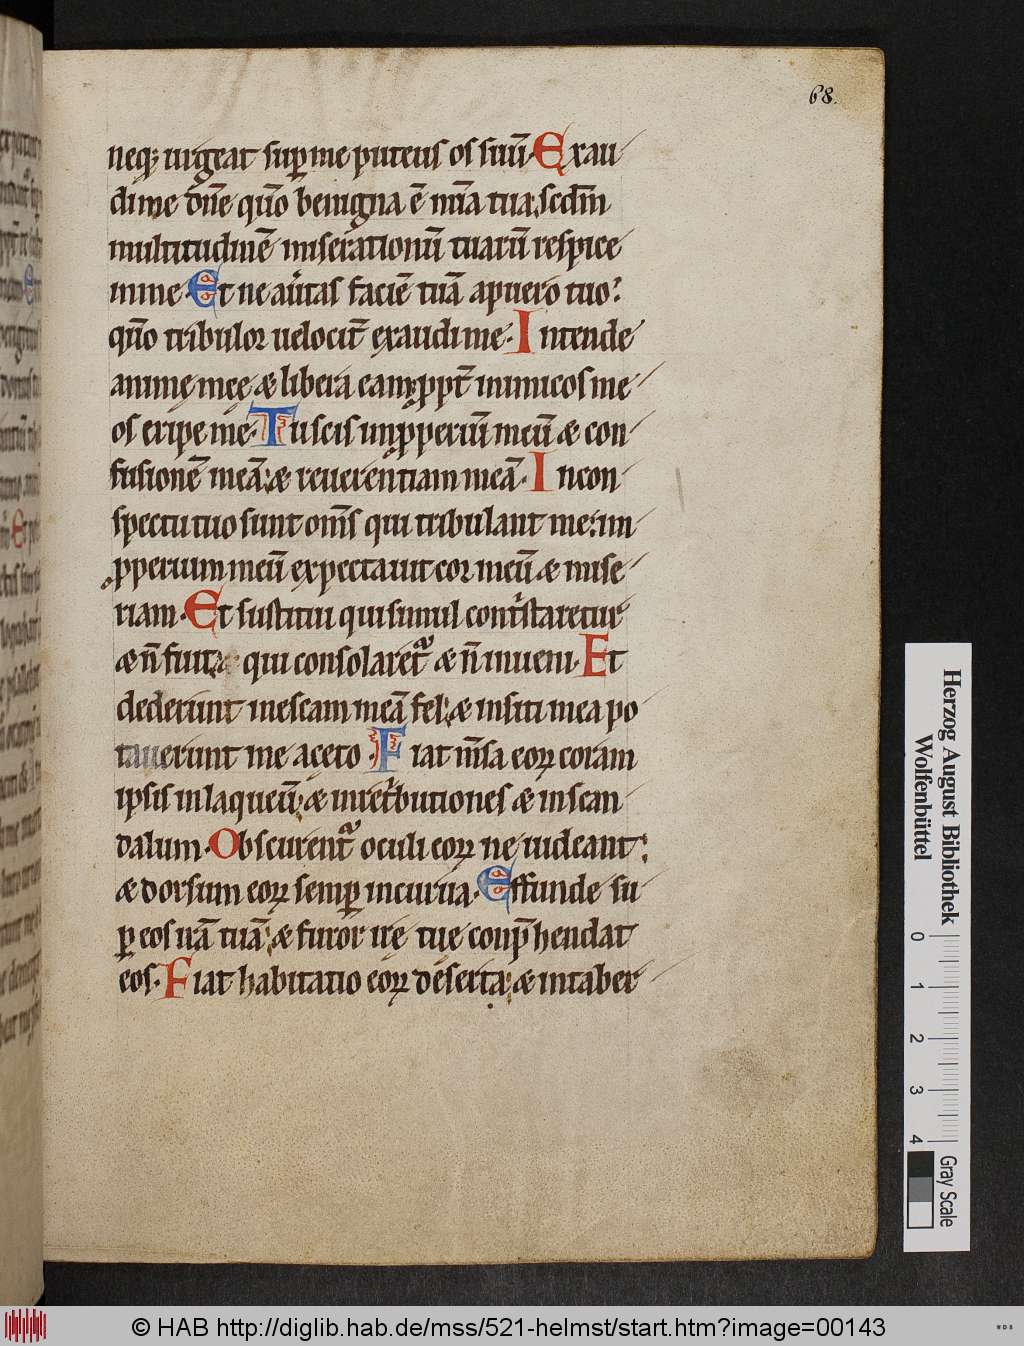 68.
neq; urgeat sup̄ me puteus os suū. Exau
di me dn̄e qm̄o benigna ē mīa tua, sedm̄
multitudinē miserationū tuarū respice
in me. Et ne au̓tas faciē tuā a puero tuo:
qm̄o tribulor uelocit̄ exaudi me. Intende
animę meę & libera eam, ꝓpt̄ inimicos me
os eripe me. Tu scis inꝓperiū meū & con
fusionē meā: & reuerentiam meā. In con
spectu tuo sunt om̄s qui tribulant me: im
ꝓperium meū expectauit cor meū & mise
riam. Et sustinui qui simul cont̓staretur
& n̄ fuit, qui consolaret̓ & n̄ inueni. Et
dederunt in escam meā fel, & in siti mea po
tauerunt me aceto. Fiat m̄sa eoꝝ coram
ipsis in laqueū, & in ret̓butiones & in scan
dalum. Obscurent̓ oculi eoꝝ ne uideant:
& dorsum eoꝝ semꝑ incurua. Effunde su
ꝑ eos irā tuā, & furor irę tuę conp̄hendat
eos. Fiat habitatio eoꝝ deserta, & in taber
Herzog August Bibliothek
Wolfenbüttel
0 1 2 3 4
Gray Scale
© HAB http://diglib.hab.de/mss/521-helmst/start.htm?image=00143